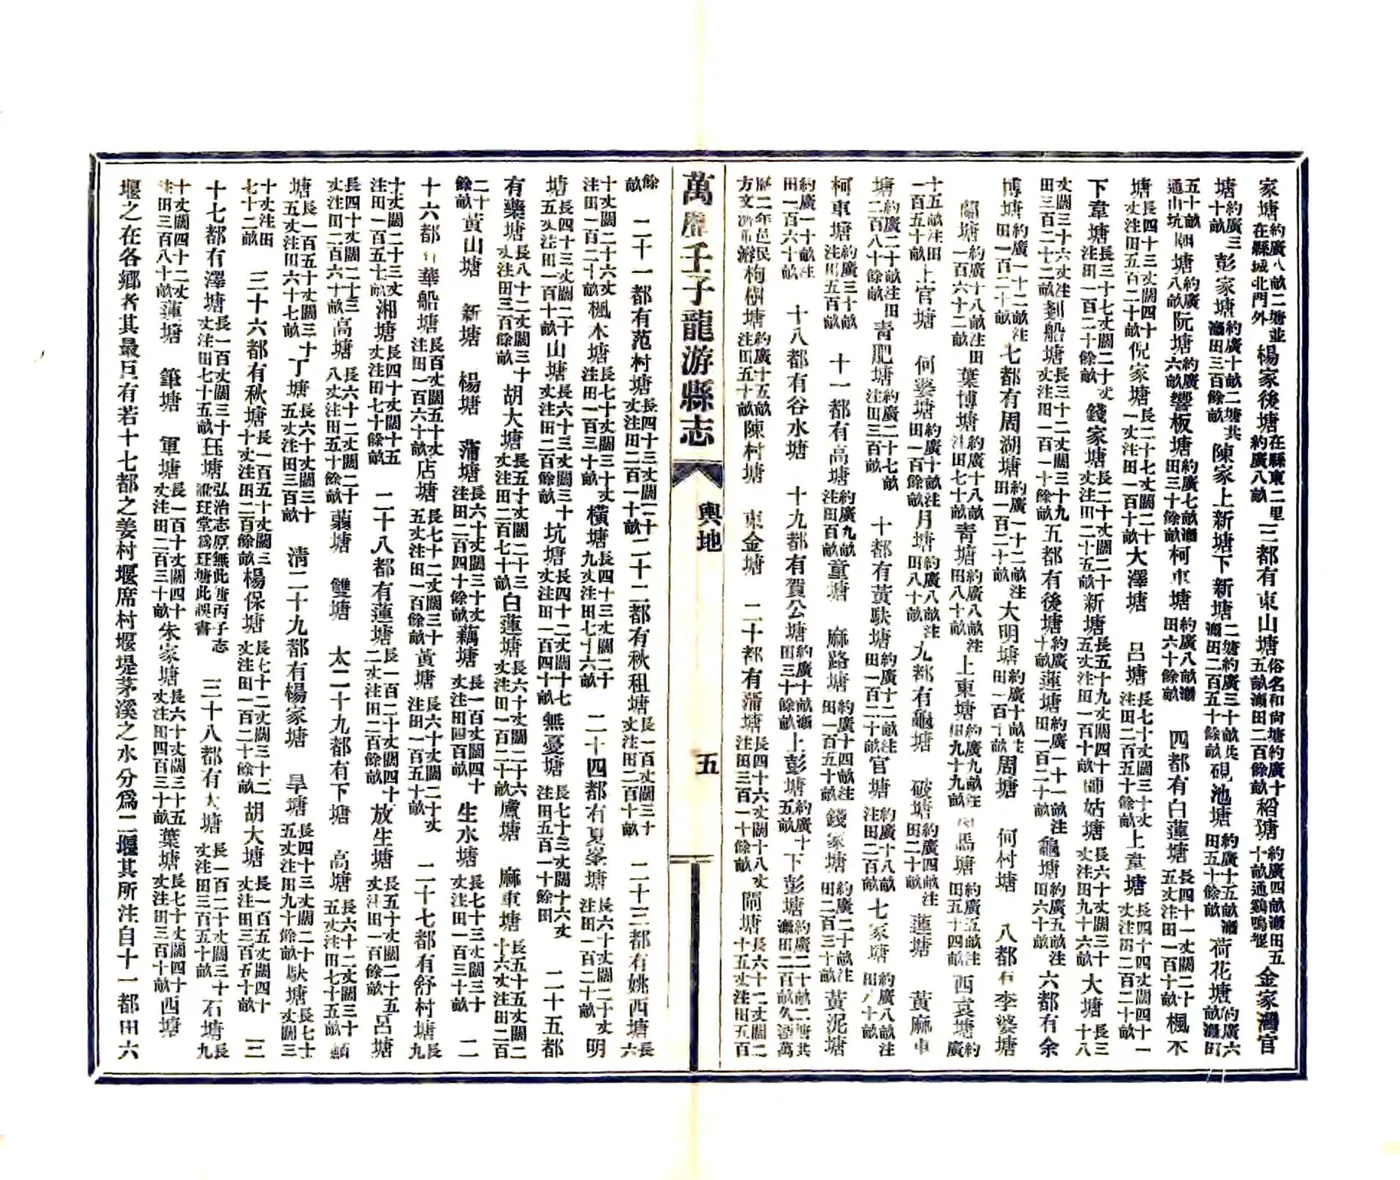 家塘約廣八畝二塘並在縣城北門外楊家後塘在縣東二里約廣八畝三都有東山塘俗名和尚塘約廣十五畝灌田二百餘畝稻塘約廣四畝灌田五十畝通鷄鳴堰金家灣官
塘約廣三十畝彭家塘約廣十畝二塘共灌田三百餘畝陳家上新塘下新塘二塘約廣三十畝共灌田二百五十餘畝硯池塘約廣十五畝灌田五十餘畝荷花塘約廣六畝灌田
五十畝灌通山坑湖塘約廣八畝阮塘約廣六畝響板塘約廣七畝灌田三十餘畝柯車塘約廣八畝灌田六十餘畝四都有白蓮塘長四十一丈闊二十五丈注田一百十畝楓木
塘長四十三丈闊四十丈注田五百二十畝倪家塘長二十七丈闊二十一丈注田一百十畝大澤塘呂塘長七十丈闊三十丈注田二百五十餘畝上童塘長四十四丈闊四十一丈注田二百二十畝
下韋塘長三十七丈闊二十丈注田一百二十餘畝錢家塘長二十丈闊二十丈注田二十五畝新塘長五十九丈闊四十五丈注田一百十畝師姑塘長六十丈闊三十丈注田九十六畝大塘長三十八
丈闊三十六丈注田三百二十二畝剗船塘長三十二丈闊三十九丈注田一百一十餘畝五都有後塘約廣十畝蓮塘約廣一十一畝注田一百二十畝龜塘約廣五畝注田六十畝六都有余
博塘約廣一十二畝注田一百二十畝七都有周湖塘約廣一十二畝注田一百二十畝大明塘約廣十畝注田一百十畝周塘何村塘八都有李婆塘
蘭塘約廣十八畝注田一百六十二畝葉博塘約廣十八畝注田七十畝青塘約廣八畝注田八十畝上東塘約廣九畝注田九十九畝何馬塘約廣五畝注田五十四畝西袁塘約廣
十五畝注田一百五十畝上官塘何婆塘約廣十畝注田一百餘畝月塘約廣八畝注田八十畝九都有龜塘破塘約廣四畝注田二十畝蓮塘黃麻車
塘約廣二十畝注田二百八十餘畝青肥塘約廣二十七畝注田三百畝十都有黃駃塘約廣十二畝注田一百二十餘畝官塘約廣十八畝注田二百畝七家塘約廣八畝注田八十畝
柯車塘約廣三十畝注田五百畝十一都有高塘約廣九畝注田百畝童塘麻路塘約廣十四畝注田一百五十畝錢家塘約廣二十畝注田二百三十畝黃泥塘
約廣一十畝注田一百六十畝十八都有谷水塘十九都有賀公塘約廣十畝灌田三十餘畝上彭塘約廣十五畝下彭塘約廣二十畝二塘共灌田二百畝久湮萬
曆二年邑民方文濟濬枸樹塘約廣十五畝注田五十畝陳村塘東金塘二十都有蒲塘長四十六丈闊十八丈注田三百一十餘畝閙塘長六十一丈闊二十五丈注田五百
萬曆壬子龍游縣志
輿地
五
餘畝二十一都有范村塘長四十三丈闊二十丈注田二百一十畝二十二都有秋租塘長一百丈闊三十丈注田二百十畝二十三都有姚西塘長六
十丈闊二十六丈注田一百二十畝楓木塘長七十丈闊三十丈注田一百三十畝橫塘長四十三丈闊二十九丈注田七十六畝二十四都有夏峯塘長六十丈闊二十丈注田一百二十畝明
塘長四十三丈闊二十五丈注田一百十畝山塘長六十三丈闊三十丈注田二百餘畝坑塘長四十二丈闊十七丈注田一百四十畝無憂塘長七十三丈闊十六丈注田五百一十餘田二十五都
有藥塘長八十二丈闊三十丈注田三百餘畝胡大塘長五十丈闊二十丈注田二百七十畝白蓮塘長六十丈闊二十六丈注田一百二十畝蘆塘麻車塘長五十五丈闊二十六丈注田二百
二十餘畝黃山塘新塘楊塘蒲塘長六十丈闊三十丈注田二百四十餘畝藕塘長一百丈闊四十丈注田四百畝生水塘長七十三丈闊三十丈注田一百三十畝二
十六都有華船塘長一百丈闊五十丈注田一百六十畝店塘長七十二丈闊三十五丈注田一百餘畝黃塘長六十丈闊二十丈注田一百五十畝二十七都有舒村塘長九
十丈闊二十三丈注田一百五十畝湘塘長四十丈闊十五丈注田七十餘畝二十八都有蓮塘長一百二十丈闊四十二丈注田二百餘畝放生塘長五十丈闊二十五丈注田一百餘畝呂塘
長四十丈闊二十三丈注田二百六十畝高塘長六十二丈闊二十八丈注田五十餘畝蒻塘雙塘太二十九都有下塘高塘長六十二丈闊三十五丈注田七十五畝鯿
塘長一百五十丈闊三十五丈注田六十七畝丁塘長六十丈闊三十五丈注田三百畝清二十九都有楊家塘旱塘長四十三丈闊二十五丈注田九十餘畝缺塘長七十丈闊三
十丈注田七十二畝三十六都有秋塘長一百五十丈闊三十丈注田二百餘畝楊保塘長七十二丈闊三十二丈注田一百二十餘畝胡大塘長一百五丈闊四十丈注田三百五十畝三
十七都有澤塘長一百丈闊三十丈注田七十五畝珏塘弘治志原無此塘丙子志訛珏堂爲珏塘此誤書三十八都有大塘長一百二十丈闊三十丈注田三百五十畝石塘長九
十丈闊四十二丈注田三百八十餘畝蓮塘筆塘軍塘長一百十丈闊四十丈注田二百三十畝朱家塘長六十丈闊三十五丈注田四百三十畝葉塘長七十丈闊四十丈注田三百十餘畝西塘
堰之在各鄉者其最巨有若十七都之姜村堰席村堰堤茅溪之水分爲二堰其所注自十一都田六